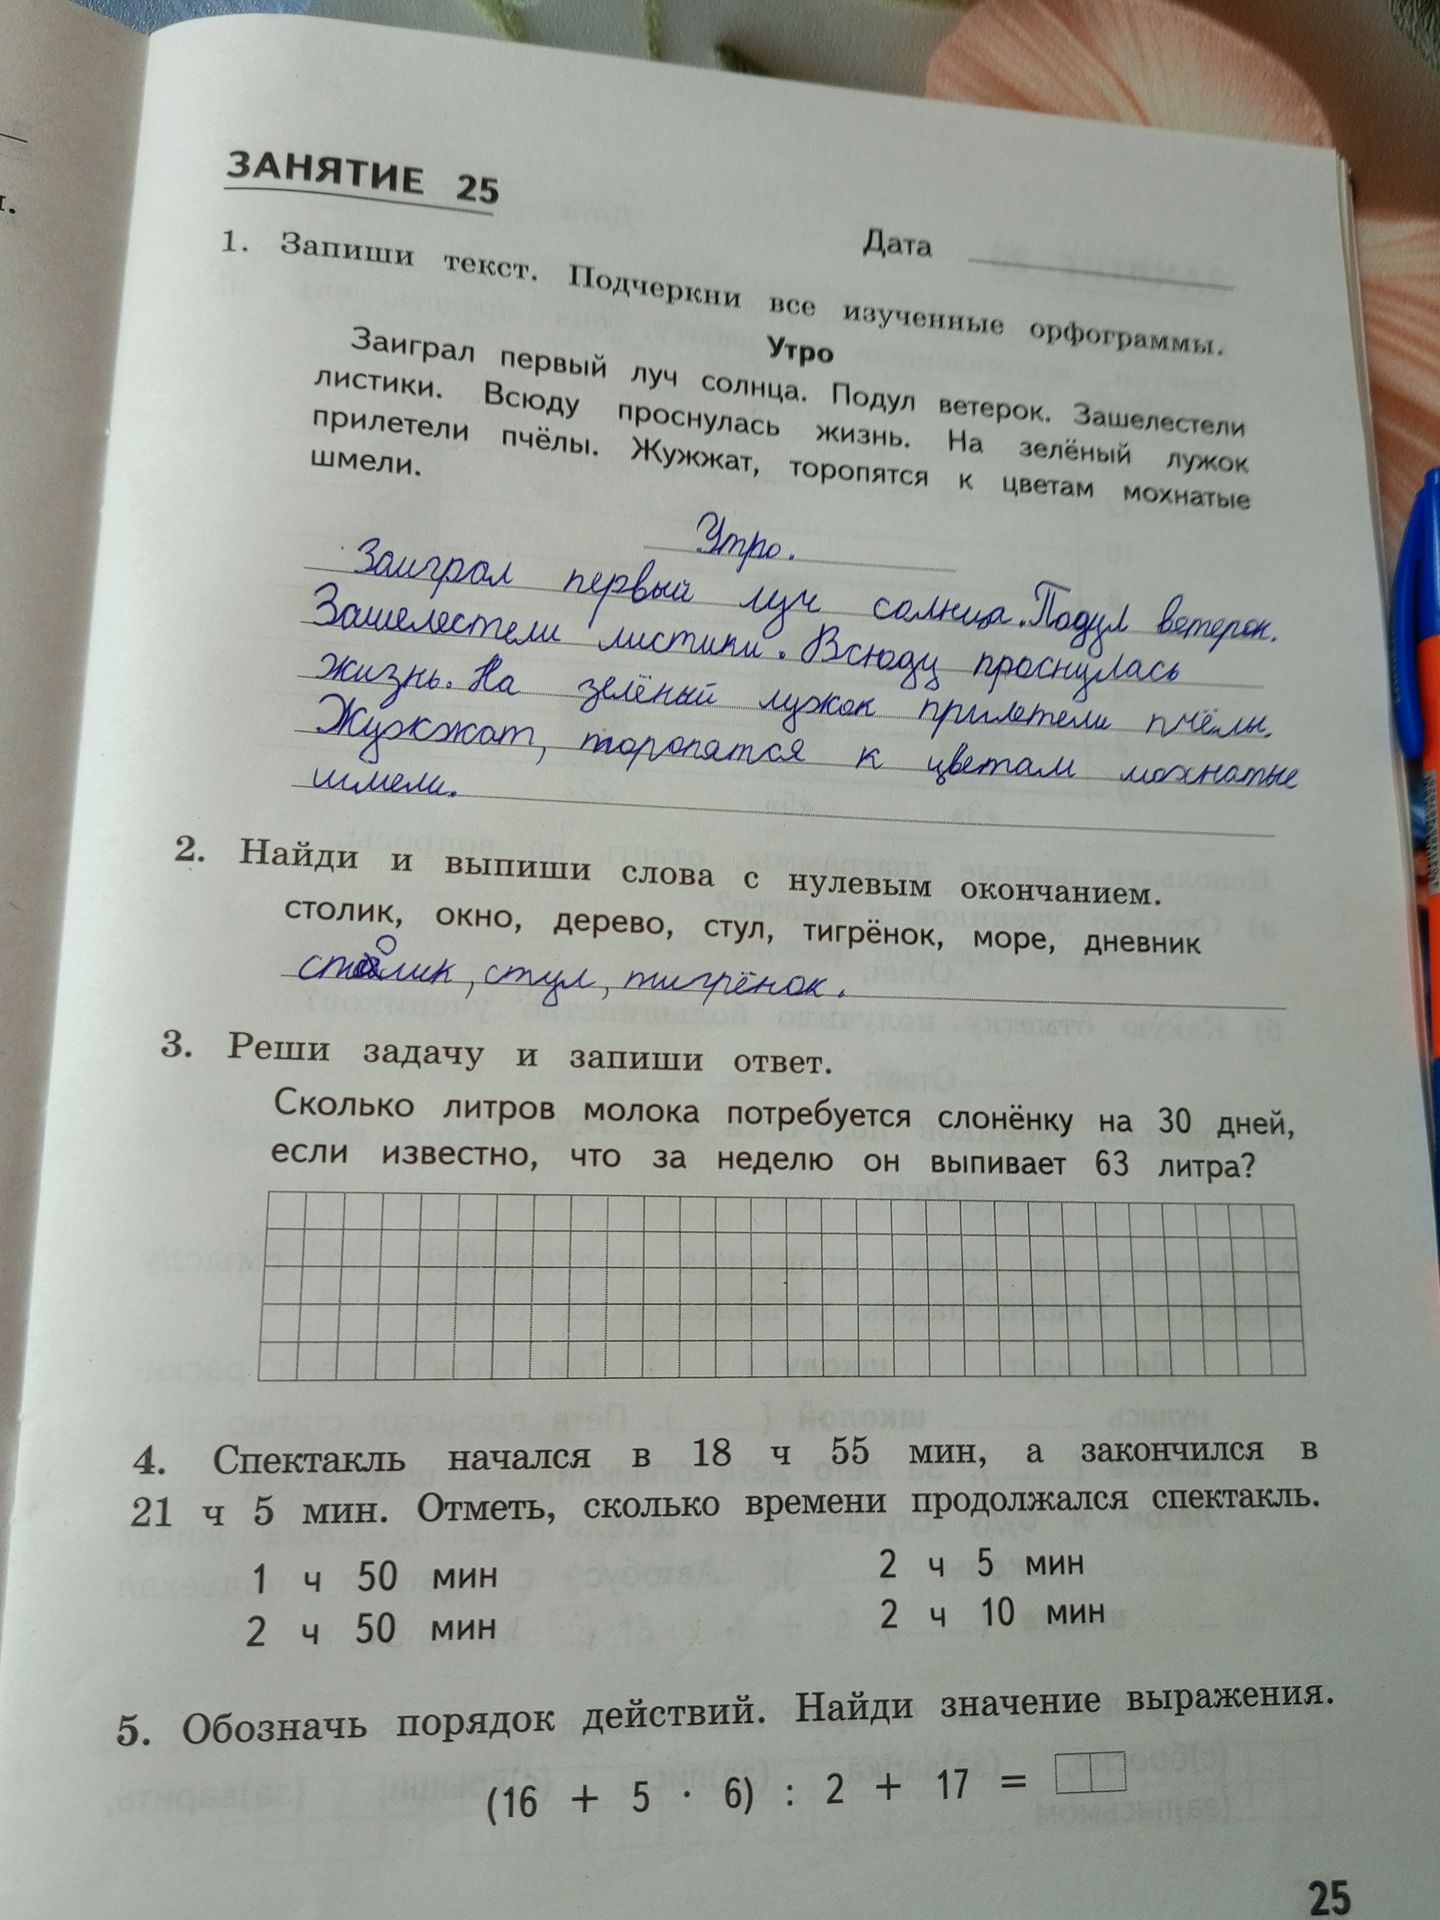 ЗАНЯТИЕ 25
Дата
1. Запиши текст. Подчеркни все изученные орфограммы.
Утро
Заиграл первый луч солнца. Подул ветерок. Зашелестели
листики. Всюду проснулась жизнь. На зелёный лужок
прилетели пчёлы. Жужжат, торопятся к цветам мохнатые
шмели.
Утро.
Заиграл первый луч солнца. Подул ветерок.
Зашелестели листики. Всюду проснулась
жизнь. На зелёный лужок прилетели пчёлы.
Жужжат, торопятся к цветам мохнатые
шмели.
2. Найди и выпиши слова с нулевым окончанием.
столик, окно, дерево, стул, тигрёнок, море, дневник
столик, стул, тигрёнок.
3. Реши задачу и запиши ответ.
Сколько литров молока потребуется слонёнку на 30 дней,
если известно, что за неделю он выпивает 63 литра?
4. Спектакль начался в 18 ч 55 мин, а закончился в
21 ч 5 мин. Отметь, сколько времени продолжался спектакль.
1 ч 50 мин 2 ч 5 мин
2 ч 50 мин 2 ч 10 мин
5. Обозначь порядок действий. Найди значение выражения.
(16 + 5 · 6) : 2 + 17 =
25